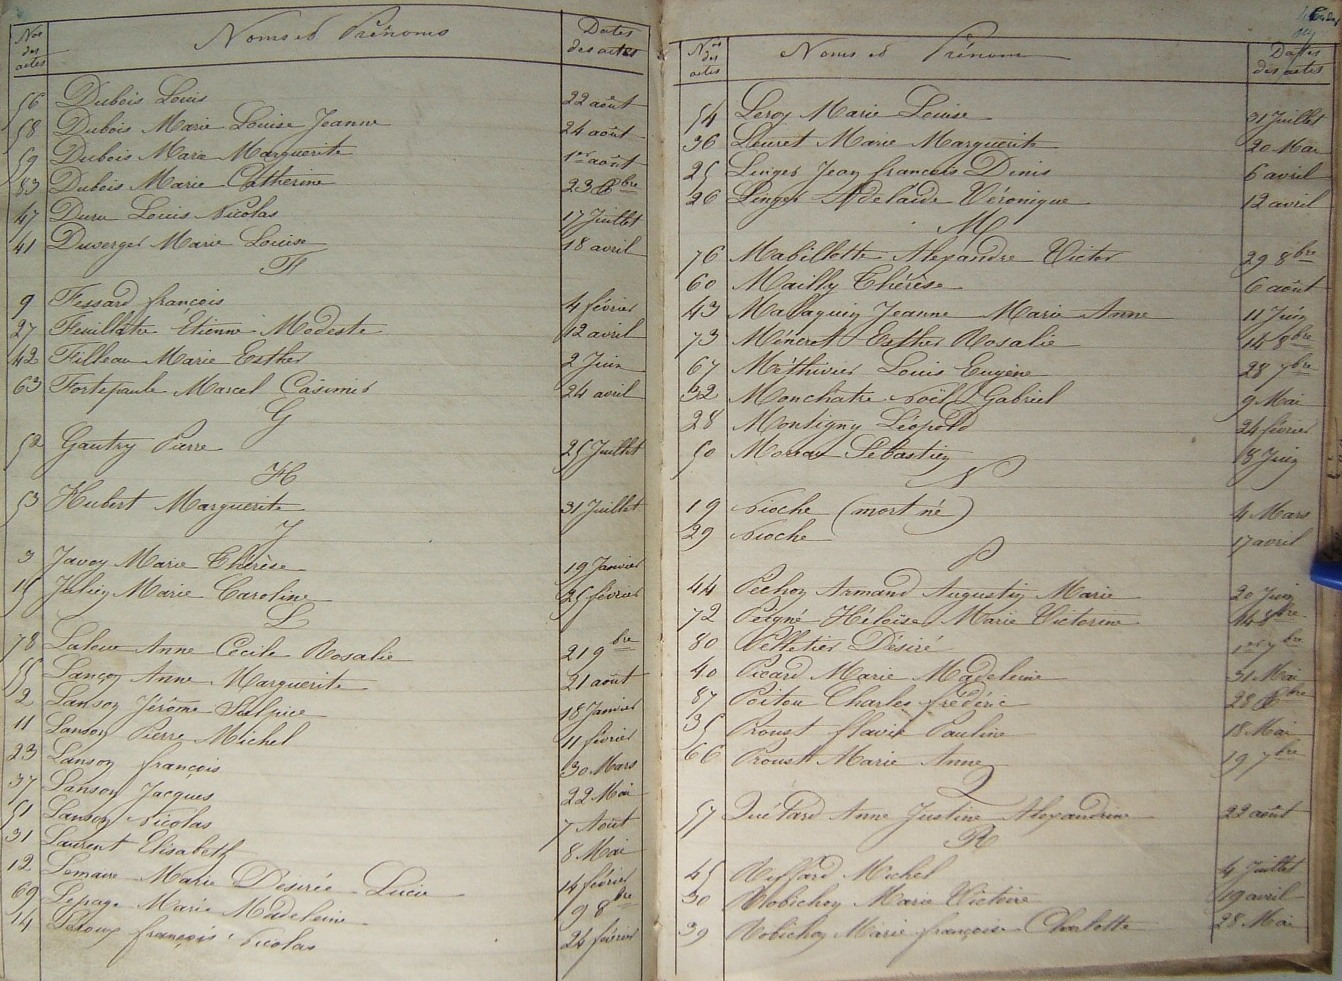 Nos des actes Noms et Prénoms Dates des actes
56 Dubois Louis 22 août
58 Dubois Marie Louise Jeanne 24 août
59 Dubois Marie Marguerite 1er août
83 Dubois Marie Catherine 23 Xbre
47 Duru Louis Nicolas 17 Juillet
41 Duverger Marie Louise 18 avril
F
9 Fessard françois 4 février
27 Feuillatre Etienne Modeste 12 avril
42 Filleau Marie Esther 2 Juin
63 Fortepaule Marcel Casimir 24 avril
G
52 Gautry Pierre 25 Juillet
H
53 Hubert Marguerite 31 Juillet
J
3 Javoy Marie Thérèse 19 Janvier
Marie Caroline 25 février
L
78 Anne Cécile Rosalie 21 9bre
55 Lançon Anne Marguerite 21 août
2 Lanson Jérôme Sulpice 18 Janvier
11 Lanson Pierre Michel 11 février
23 Lanson françois 30 Mars
37 Lanson Jacques 22 Mai
51 Lanson Nicolas 7 Août
31 Laurent Elisabeth 8 Mai
12 Lemaire Marie Désirée Lucie 14 février
69 Lepage Marie Madeleine 19 8bre
14 françois Nicolas 24 février
Nos des actes Noms et Prénoms Dates des actes
54 Leroy Marie Louise 31 Juillet
36 Leuret Marie Marguerite 20 Mai
25 Linger Jean françois Denis 6 avril
26 Linger Adélaïde Véronique 12 avril
M
76 Mabillotte Alexandre Victor 29 8bre
60 Mailly Thérèse 6 août
43 Malaquin Jeanne Marie Anne 11 Juin
73 Ménerat Esther Rosalie 14 8bre
67 Méthivier Louis Eugène 28 7bre
32 Monchatre Noël Gabriel 9 Mai
28 Montigny Léopold 24 février
50 Sébastien 18 Juin
N
19 Nioche (mort né) 4 Mars
29 Nioche 17 avril
P
44 Pechon Armand Augustin Marie 20 Juin
72 Peigné Héloïse Marie Victorine 14 8bre
80 Pelletier Désiré
40 Picard Marie Madeleine 31 Mai
87 Poitou Charles frédéric 28 Xbre
35 Proust flavie Pauline 18 Mai
66 Proust Marie Anne 19 7bre
Q
57 Quétard Anne Justine Alexandrine 22 août
R
45 Riffard Michel 4 Juillet
30 Robichon Marie Victoire 19 avril
39 Robichon Marie françoise Charlotte 28 Mai